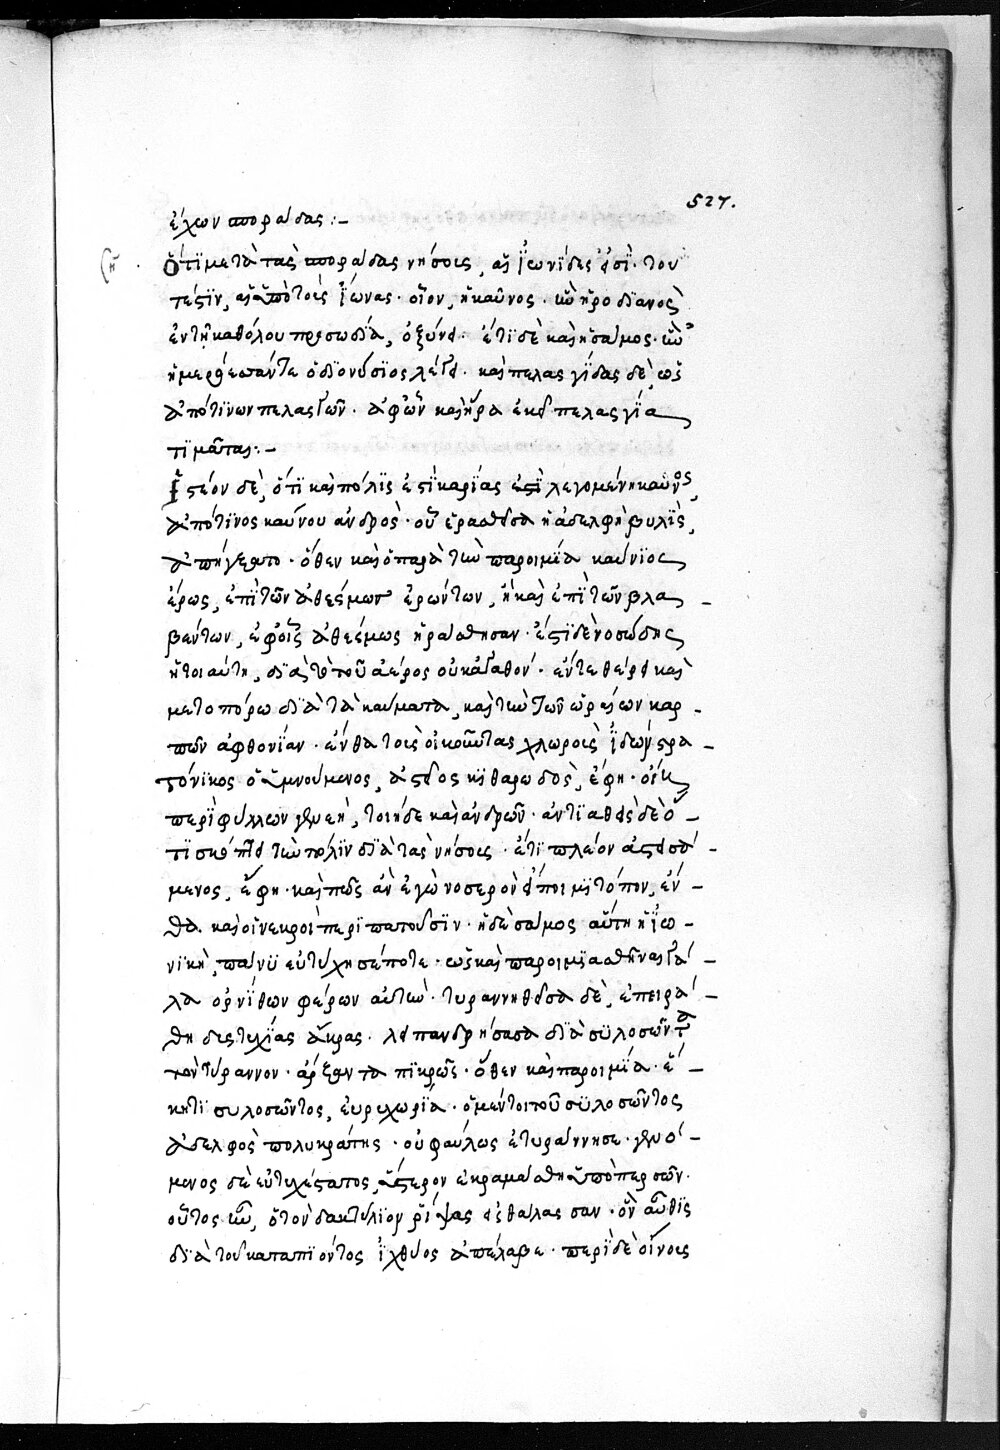 527.
ἔχων σποράδας :-
Ὅτι μετὰ τὰς σποράδας νήσους, αἱ Ἰωνίδες εἰσὶ. του
τέστιν, αἱ ὑπὸ τοὺς Ἴωνας. οἷον, ἡ καῦνος. ἣν ἡρωδιανὸς
ἐν τῇ καθόλου προσωδία, ὀξύνει. ἔτι δὲ καὶ ἡ σάμος. ἣν
ἱμερόεσσάν τε ὁ διονύσιος λέγει. καὶ πελασγίδας δὲ, ὡς
ἀπό τινων πελασγῶν. ἀφ' ὧν καὶ ἥρα ἐκεῖ πελασγία
τιμᾶται:-
Ἰστέον δὲ, ὅτι καὶ πόλις ἐστὶ καρίας λεγομένη καῦνος,
ἀπό τινος καύνου ἀνδρὸς. οὗ ἐρασθεῖσα ἡ ἀδελφὴ βυλὶς,
ἀπήγξατο. ὅθεν καὶ ὁ παρὰ τὴν παροιμία καύνιος
ἔρως, ἐπὶ τῶν ἀθέσμων ἐρώντων, ἢ καὶ ἐπὶ τῶν βλα-
βέντων, ἐφ' οἷς ἀθέσμως ἠράσθησαν. ἔστι δὲ νοσώδης
ἤτοι αὕτη, διὰ τὸ τοῦ ἀέρος οὐκ ἀγαθόν. ἔν τε θέρει καὶ
μετοπώρω διὰ τὰ καύματα, καὶ τὴν τῶν ὡραίων καρ-
πῶν ἀφθονίαν. ἔνθα τοὺς οἰκοῦντας χλωροὺς ἰδὼν στρα-
τόνικος ὁ ὑμνούμενος, ἀστεῖος κιθαρωδὸς, ἔφη. οἵη
περὶ φύλλων γενεὴ, τοιήδε καὶ ἀνδρῶν. ἀντιαθεὶς δὲ ὅ-
τι σκώπτει τὴν πόλιν διὰ τὰς νήσους. ἔτι πλέον ἀστεϊσά-
μενος, ἔφη. καὶ πῶς ἂν ἐγὼ νοσερὸν εἴποιμι τόπον, ἔν-
θα καὶ οἱ νεκροὶ περιπατοῦσιν. ἡ δὲ σάμος αὕτη ἡ ἰω-
νικὴ, πάνυ εὐτύχησέ ποτε. ὡς καὶ παροιμιασθῆναι γά-
λα ὀρνίθων φέρειν αὐτήν. τυραννηθεῖσα δὲ, ἐπειρά-
θη δυστυχίας ἄκρας. λειπανδρήσασα διὰ συλοσῶντα
τὸν τύραννον. ἄρξαντα πικρῶς. ὅθεν καὶ παροιμία. ἕ-
κητι συλοσῶντος, εὐρυχωρία. ὁ μέντοι τοῦ συλοσῶντος
ἀδελφὸς πολυκράτης. οὐ φαύλως ἐτυράννησε. γενό-
μενος δὲ εὐτυχέστατος, ὕστερον ἐκραμάσθη ὑπὸ περσῶν.
οὗτος ἦν, ὃ τὸν δακτύλιον ῥίψας εἰς θάλασσαν. ὃν αὖθις
διὰ τοῦ καταπιόντος ἰχθύος ἀπέλαβε. περὶ δὲ οἴνους